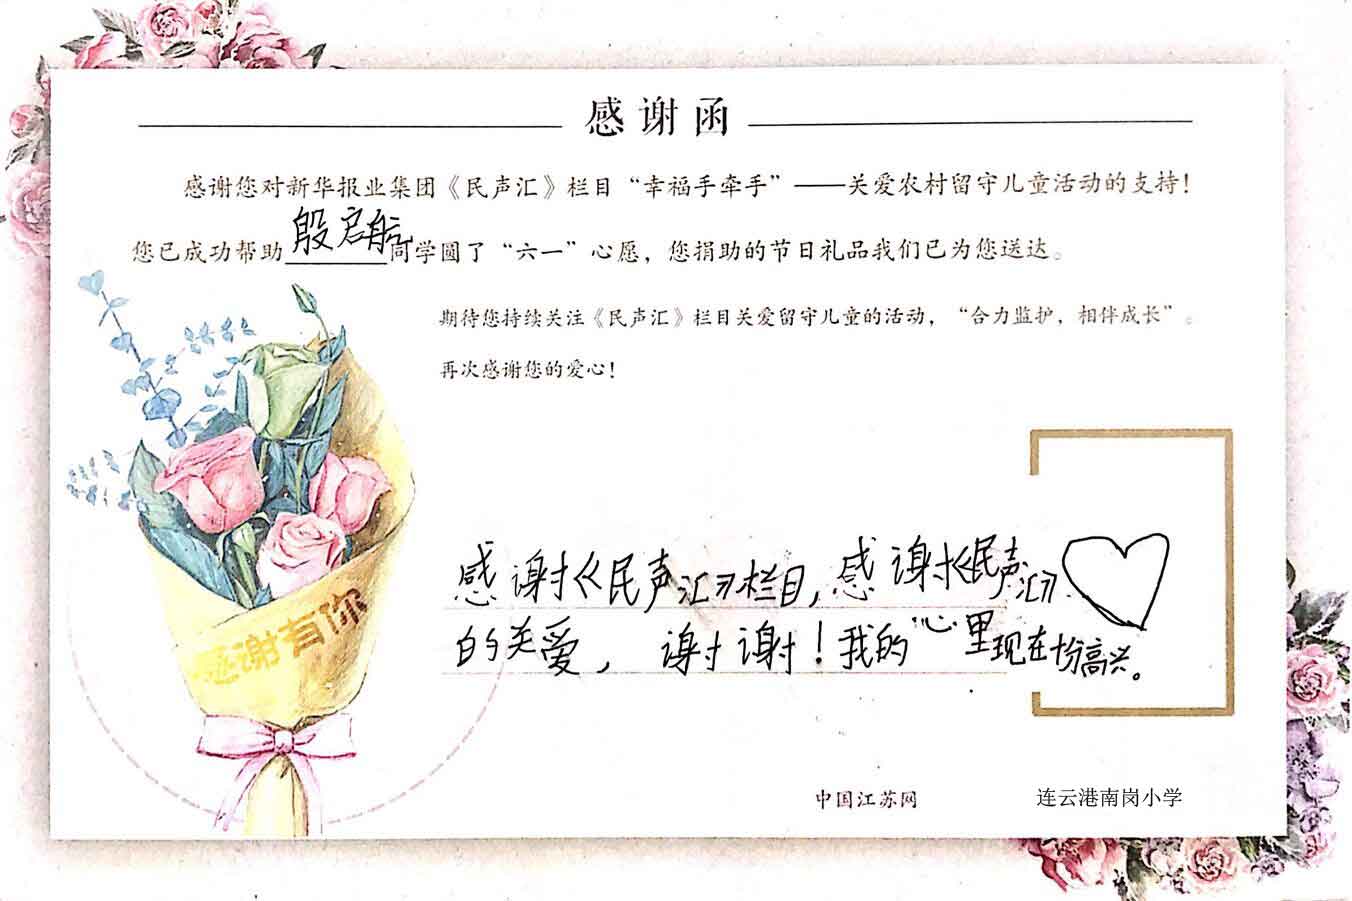 感谢函
感谢您对新华报业集团《民声汇》栏目“幸福手牵手”——关爱农村留守儿童活动的支持！
您已成功帮助殷启航同学圆了“六一”心愿，您捐助的节日礼品我们已为您送达。
期待您持续关注《民声汇》栏目关爱留守儿童的活动，“合力监护，相伴成长”。
再次感谢您的爱心！
感谢《民声汇》栏目，感谢《民声汇》
的关爱，谢谢！我的“心”里现在十分高兴。
感谢有你
中国江苏网 连云港南岗小学